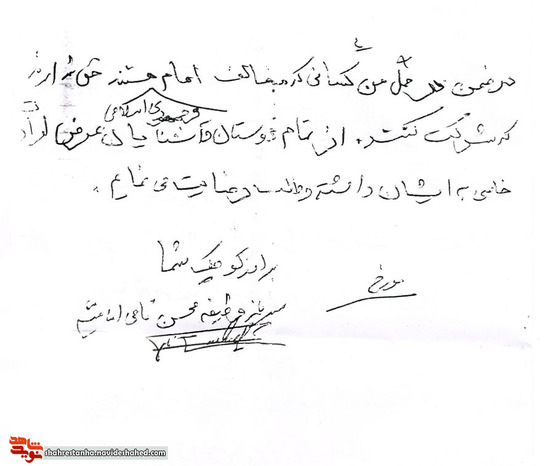 در ضمن در ختم من کسانی که مخالف امام هستند حق ندارند
و جمهوری اسلامی
که شرکت کنند. از تمام دوستان و آشنایان عرض
خاصی به ایشان داشته و طلب رضایت می نمایم.
برادر کوچک شما
مورخ
سرباز وظیفه محسن
نوید شاهد
shahrestanha.navideshahed.com